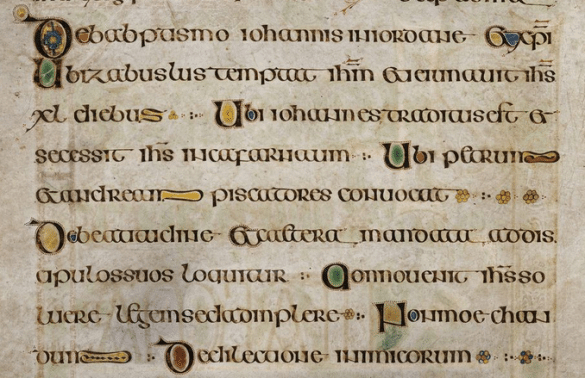 De babptismo iohannis iniordane Et xp̄i
Ubi zabuslus temptat ihm̄ et ieiunauit ihs̄
xl diebus Ubi iohannes traditus est et
secessit ihs̄ incafarnaum Ubi petrum
et andream piscatores conuocat
De beatitudine Et caetera mandata addis
cipulossuos loquitur uenit ihs̄ so
luere legemsedadimplere Nonmoechan
dum De dilectione inimicorum